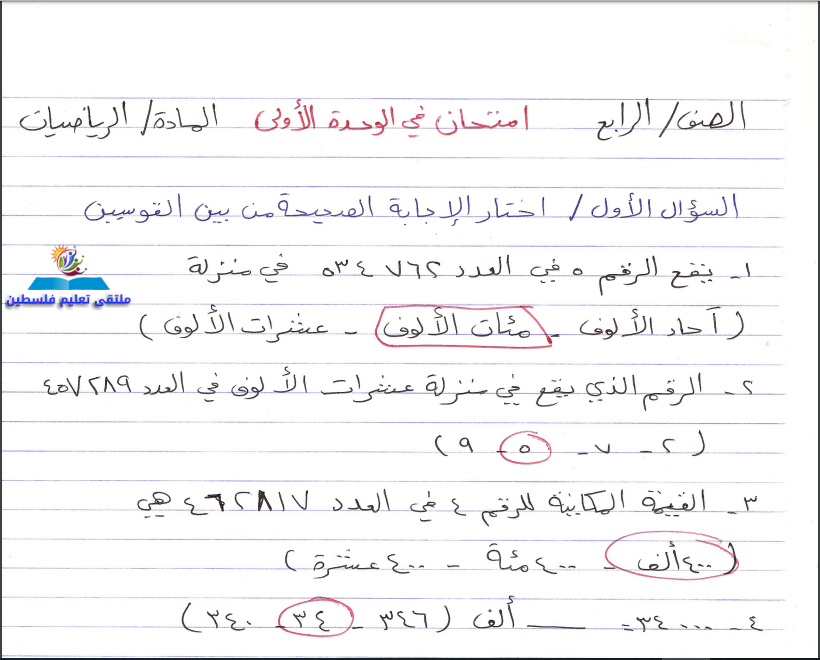 الصف/ الرابع امتحان في الوحدة الأولى المادة/ الرياضيات
السؤال الأول/ اختار الإجابة الصحيحة من بين القوسين
١- يقع الرقم ٥ في العدد ٥٣٤٧٦٢ في منزلة
(آحاد الألوف - مئات الألوف - عشرات الألوف)
ملتقى تعليم فلسطين
٢- الرقم الذي يقع في منزلة عشرات الألوف في العدد ٤٥٧٢٨٩
(٢ - ٧ - ٥ - ٩)
٣- القيمة المكانية للرقم ٤ في العدد ٤٦٢٨١٧ هي
(٤٠٠ ألف - ٤٠٠ مئة - ٤٠٠ عشرة)
٤- ٣٤٠٠٠ = ــــ ألف (٣٤٦ - ٣٤ - ٣٤٠)